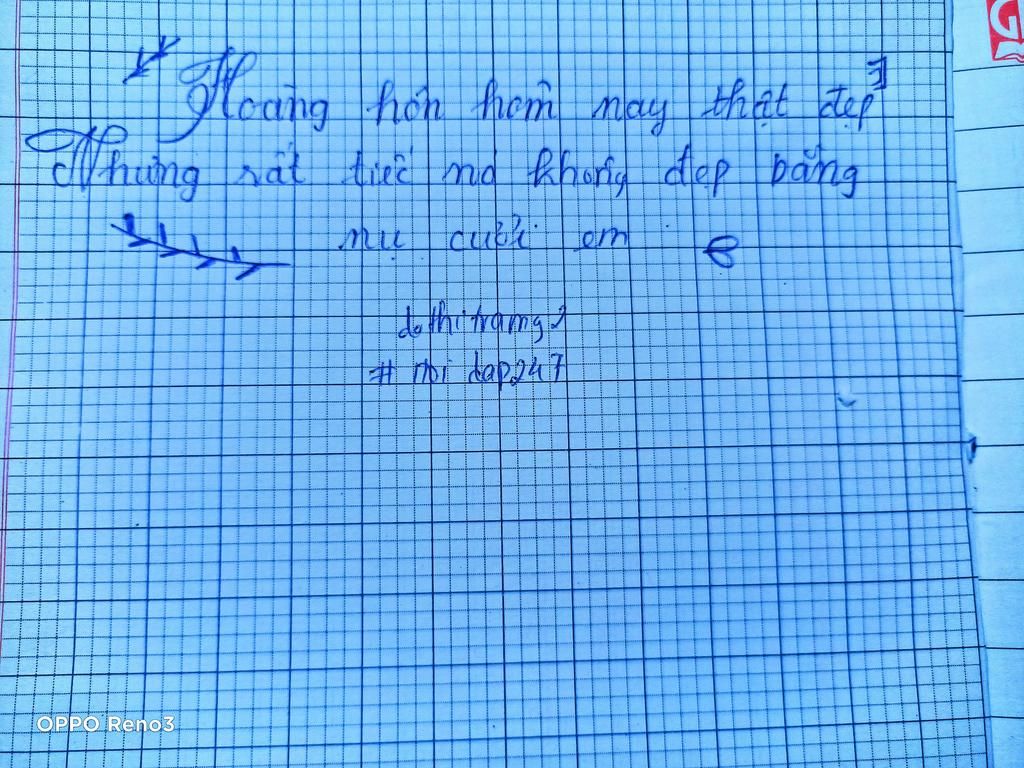 Hoàng hôn hôm nay thật đẹp
Nhưng rất tiếc nó không đẹp bằng
nụ cười em
dothitramg2
# hoi dap247
G
OPPO Reno3